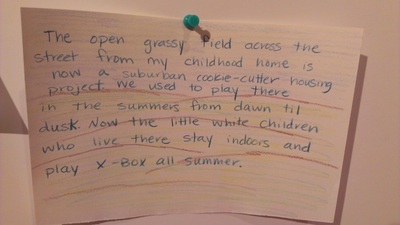 The open grassy field across the
street from my childhood home is
now a suburban cookie-cutter housing
project. We used to play there
in the summers from dawn til
dusk. Now the little white children
who live there stay indoors and
play X-Box all summer.